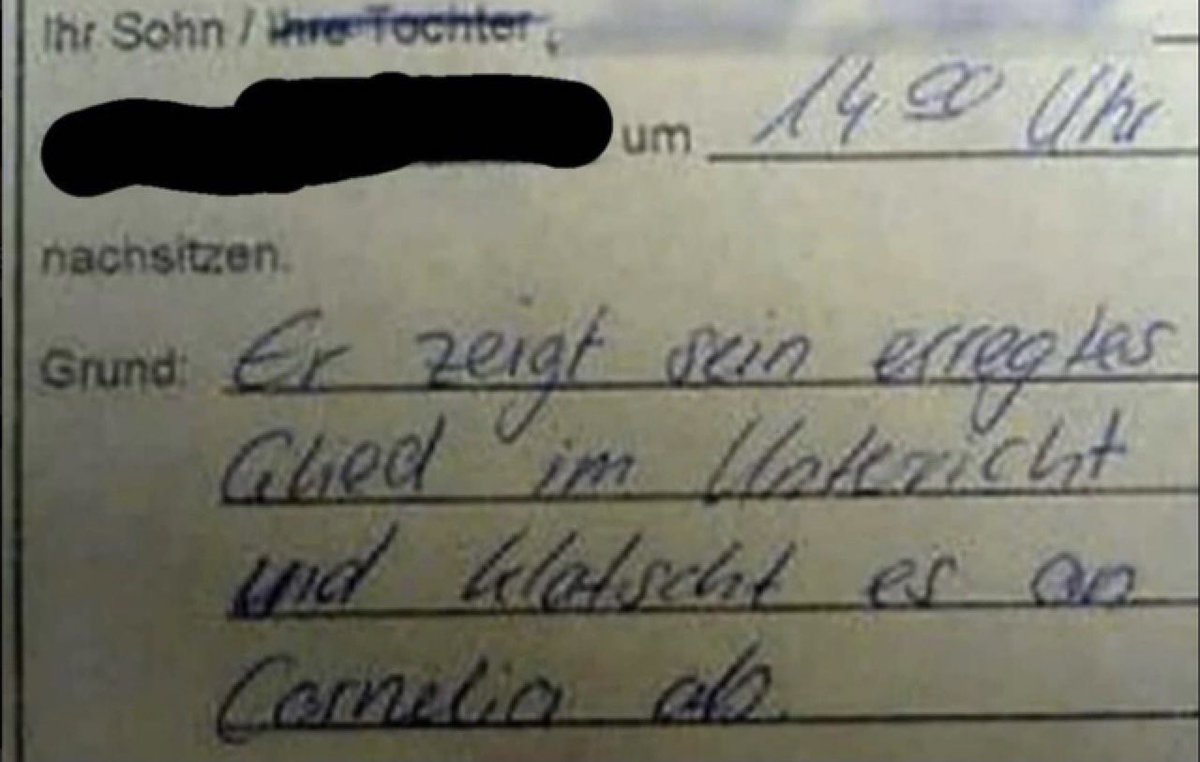 Ihr Sohn / Ihre Tochter,
um 14 00 Uhr
nachsitzen.
Grund: Er zeigt sein erregtes
Glied im Unterricht
und klatscht es an
Cornelia ab.